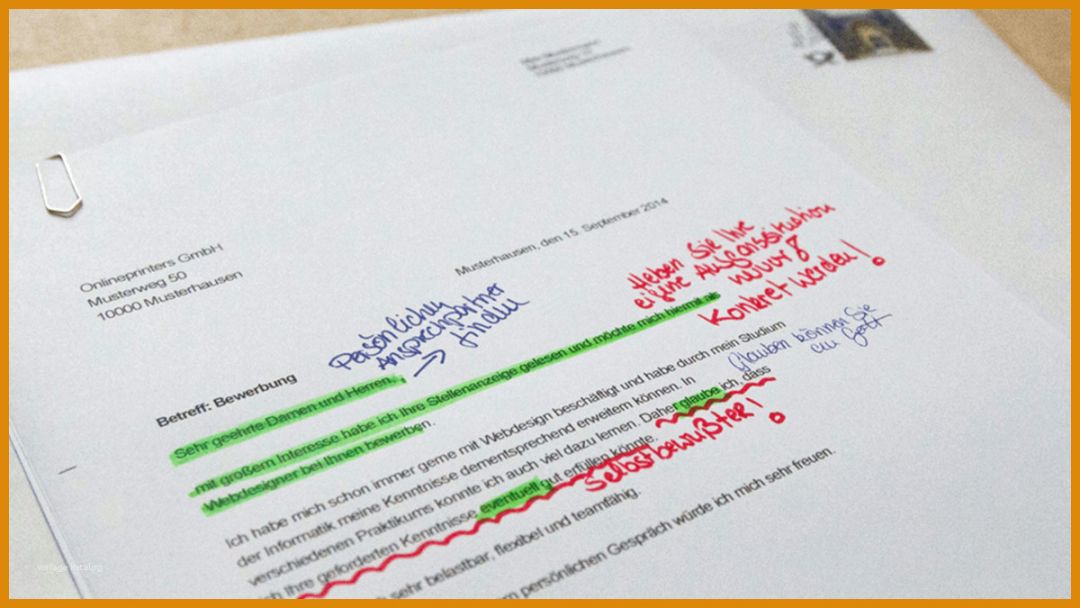 Musterhausen, den 15. September 2014
Onlineprinters GmbH
Musterweg 50
10000 Musterhausen
Heben Sie Ihre
eigene Ausgangssituation
Konkret werden!
Persönlichen
Ansprechpartner
→ finden
Betreff: Bewerbung
Sehr geehrte Damen und Herren,
mit großem Interesse habe ich Ihre Stellenanzeige gelesen und möchte mich hiermit als
Webdesigner bei Ihnen bewerben.
Glauben können Sie
an Gott
Ich habe mich schon immer gerne mit Webdesign beschäftigt und habe durch mein Studium
der Informatik meine Kenntnisse dementsprechend erweitern können. In
verschiedenen Praktikums konnte ich auch viel dazu lernen. Daher glaube ich, dass
ich Ihre geforderten Kenntnisse eventuell gut erfüllen könnte.
Selbstbewußter!
sehr belastbar, flexibel und teamfähig.
persönlichen Gespräch würde ich mich sehr freuen.